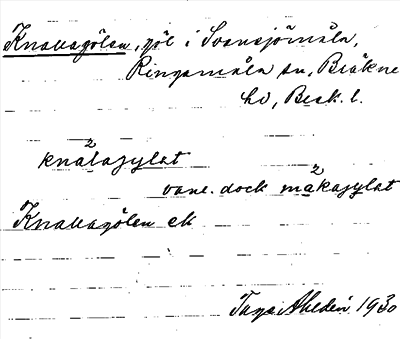 Knallagölen, göl i Svensjömåla,
Ringamåla sn, Bräkne
hd, Blek. l.
2
knalagylst
2
vanl. dock makagylst
Knallagölen ek
Tage Ahldén 1930